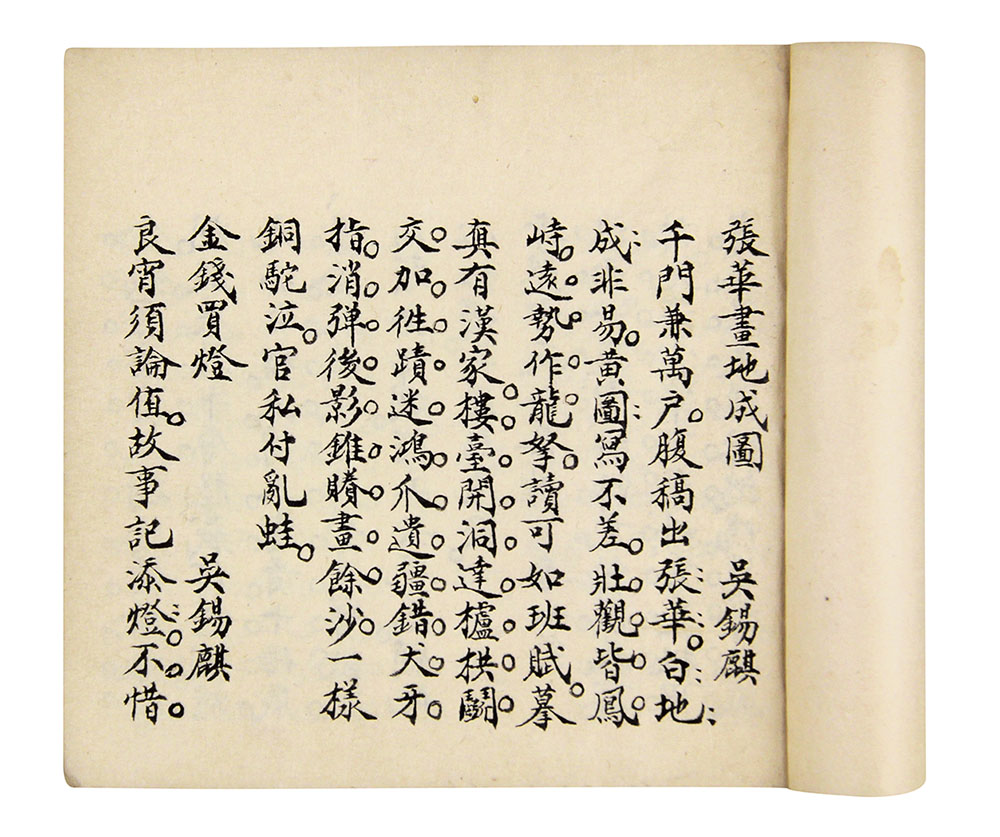 張華畫地成圖 吳錫麒
千門兼萬户。腹稿出張華。白地
成非易。黃圖寫不差。壯觀皆鳳
峙。遠勢作龍拏。讀可如班賦。摹
真有漢家。樓臺開洞達。櫨栱鬭
交加。徃蹟迷鴻爪。遺疆錯犬牙。
指消弹後影。錐賸畫餘沙。一樣
銅駝泣。官私付亂蛙。
金錢買燈 吳錫麒
良宵須論值。故事記添燈。不惜